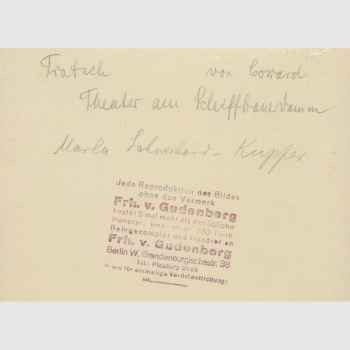 Tratsch von Coward
Theater am Schiffbauerdamm
Marla - Kupfer
Jede Reproduktion des Bildes
ohne den Vermerk
Frh. v. Gudenberg
kostet 5 mal mehr als das übliche
Honorar,
Belegexemplar und Honorar an
Frh. v. Gudenberg
Berlin W, Brandenburgischestr. 38
Tel.:
Preis für einmalige Veröffentlichung: